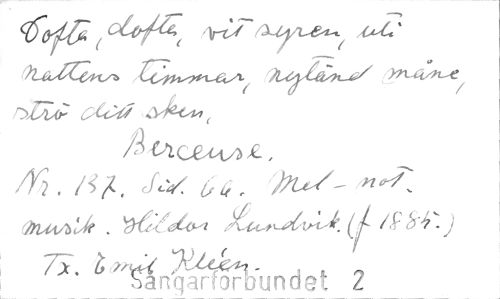 Dofta, dofta, vit syren, uti
nattens timmar, nytänd måne,
strö ditt sken,
Berceuse.
Nr. 137. Sid. 66. Mel-not.
musik. Hildor Lundvik. (f 1885.)
Tx. Emil Kléen.
Sångarförbundet 2